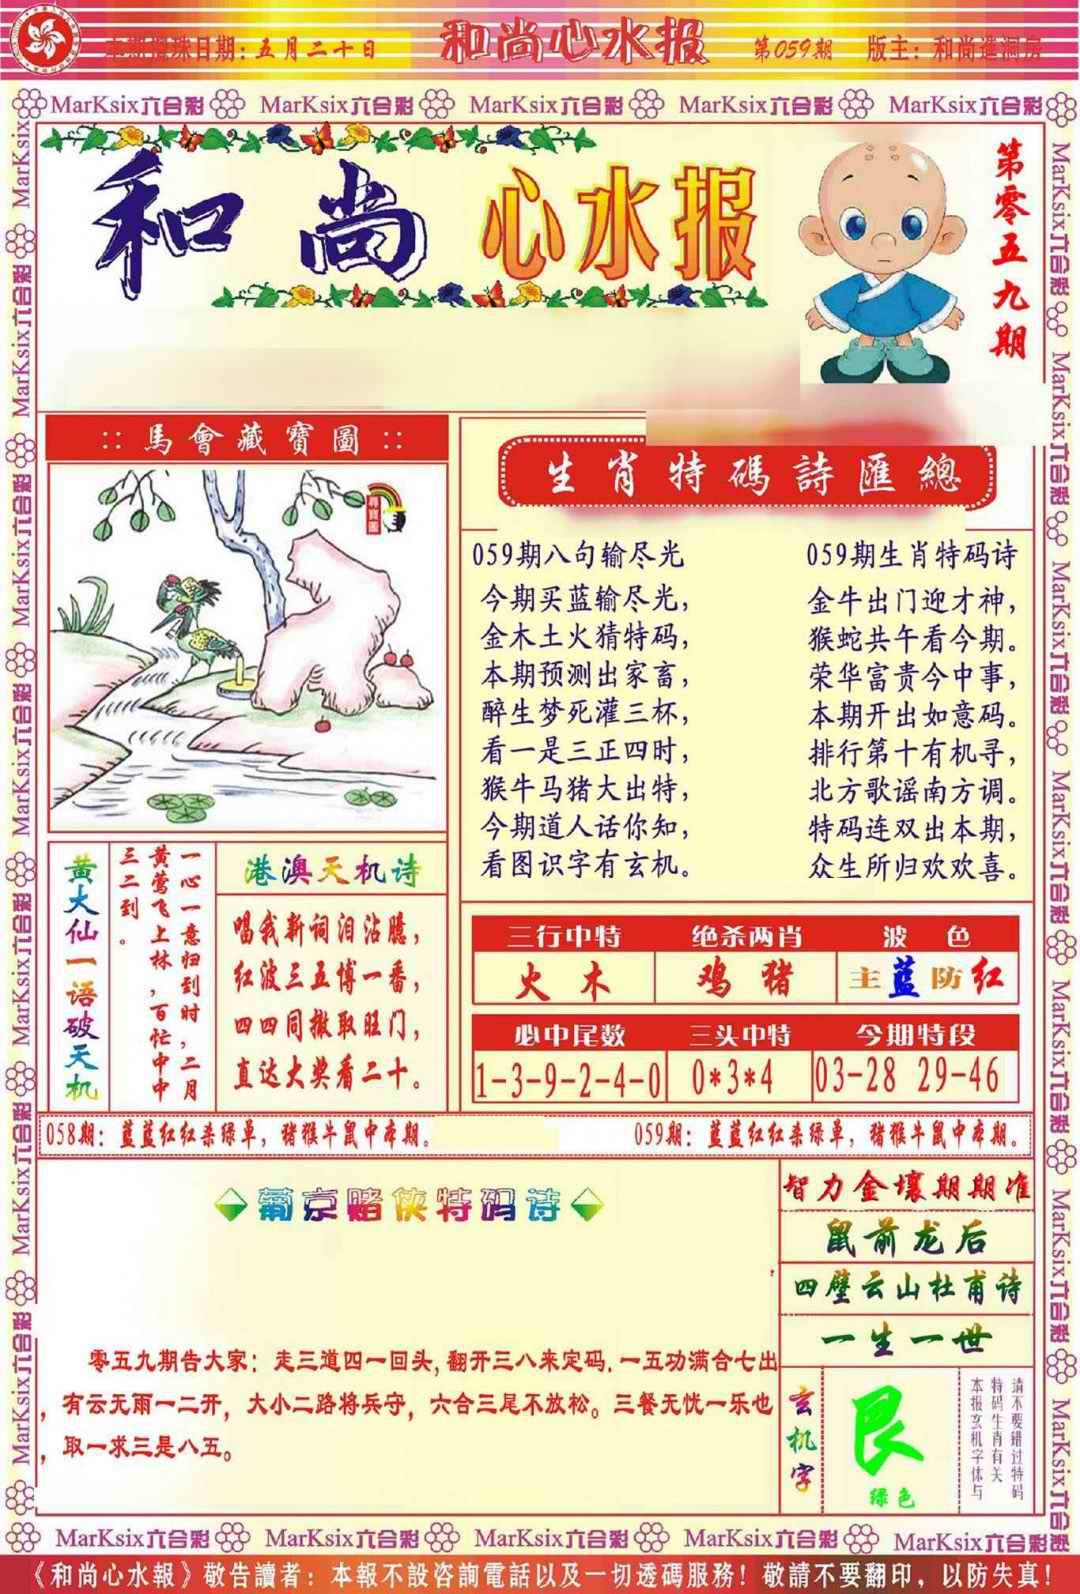 本期搅珠日期：五月二十日
和尚心水报
第059期
版主：和尚進洞房
MarKsix六合彩 MarKsix六合彩 MarKsix六合彩 MarKsix六合彩 MarKsix六合彩
和尚心水报
第零五九期
::馬會藏寶圖::
生肖特碼詩匯總
059期八句输尽光
今期买蓝输尽光，
金木土火猜特码，
本期预测出家畜，
醉生梦死灌三杯，
看一是三正四时，
猴牛马猪大出特，
今期道人话你知，
看图识字有玄机。
059期生肖特码诗
金牛出门迎才神，
猴蛇共午看今期。
荣华富贵今中事，
本期开出如意码。
排行第十有机寻，
北方歌谣南方调。
特码连双出本期，
众生所归欢欢喜。
黄大仙一语破天机
一心一意归到时，二月
黄莺飞上林，百忙中中
三二到。
港澳天机诗
唱我新词泪沾臆，
红波三五博一番，
四四同撤取旺门，
直达大奖看二十。
三行中特 绝杀两肖 波色
火木 鸡猪 主蓝防红
必中尾数 三头中特 今期特段
1-3-9-2-4-0 0*3*4 03-28 29-46
058期：蓝蓝红红杀绿单，猪猴牛鼠中本期。
059期：蓝蓝红红杀绿单，猪猴牛鼠中本期。
葡京赌侠特码诗
零五九期告大家：走三道四一回头，翻开三八来定码．一五功满合七出
，有云无雨一二开，大小二路将兵守，六合三尾不放松。三餐无忧一乐也
，取一求三是八五。
智力金壤期期准
鼠前龙后
四壁云山杜甫诗
一生一世
玄机字
艮
绿色
请不要错过特码
特码生肖有关
本报玄机字体与
MarKsix六合彩 MarKsix六合彩 MarKsix六合彩 MarKsix六合彩 MarKsix六合彩
《和尚心水報》敬告讀者：本報不設咨詢電話以及一切透碼服務！敬請不要翻印，以防失真！